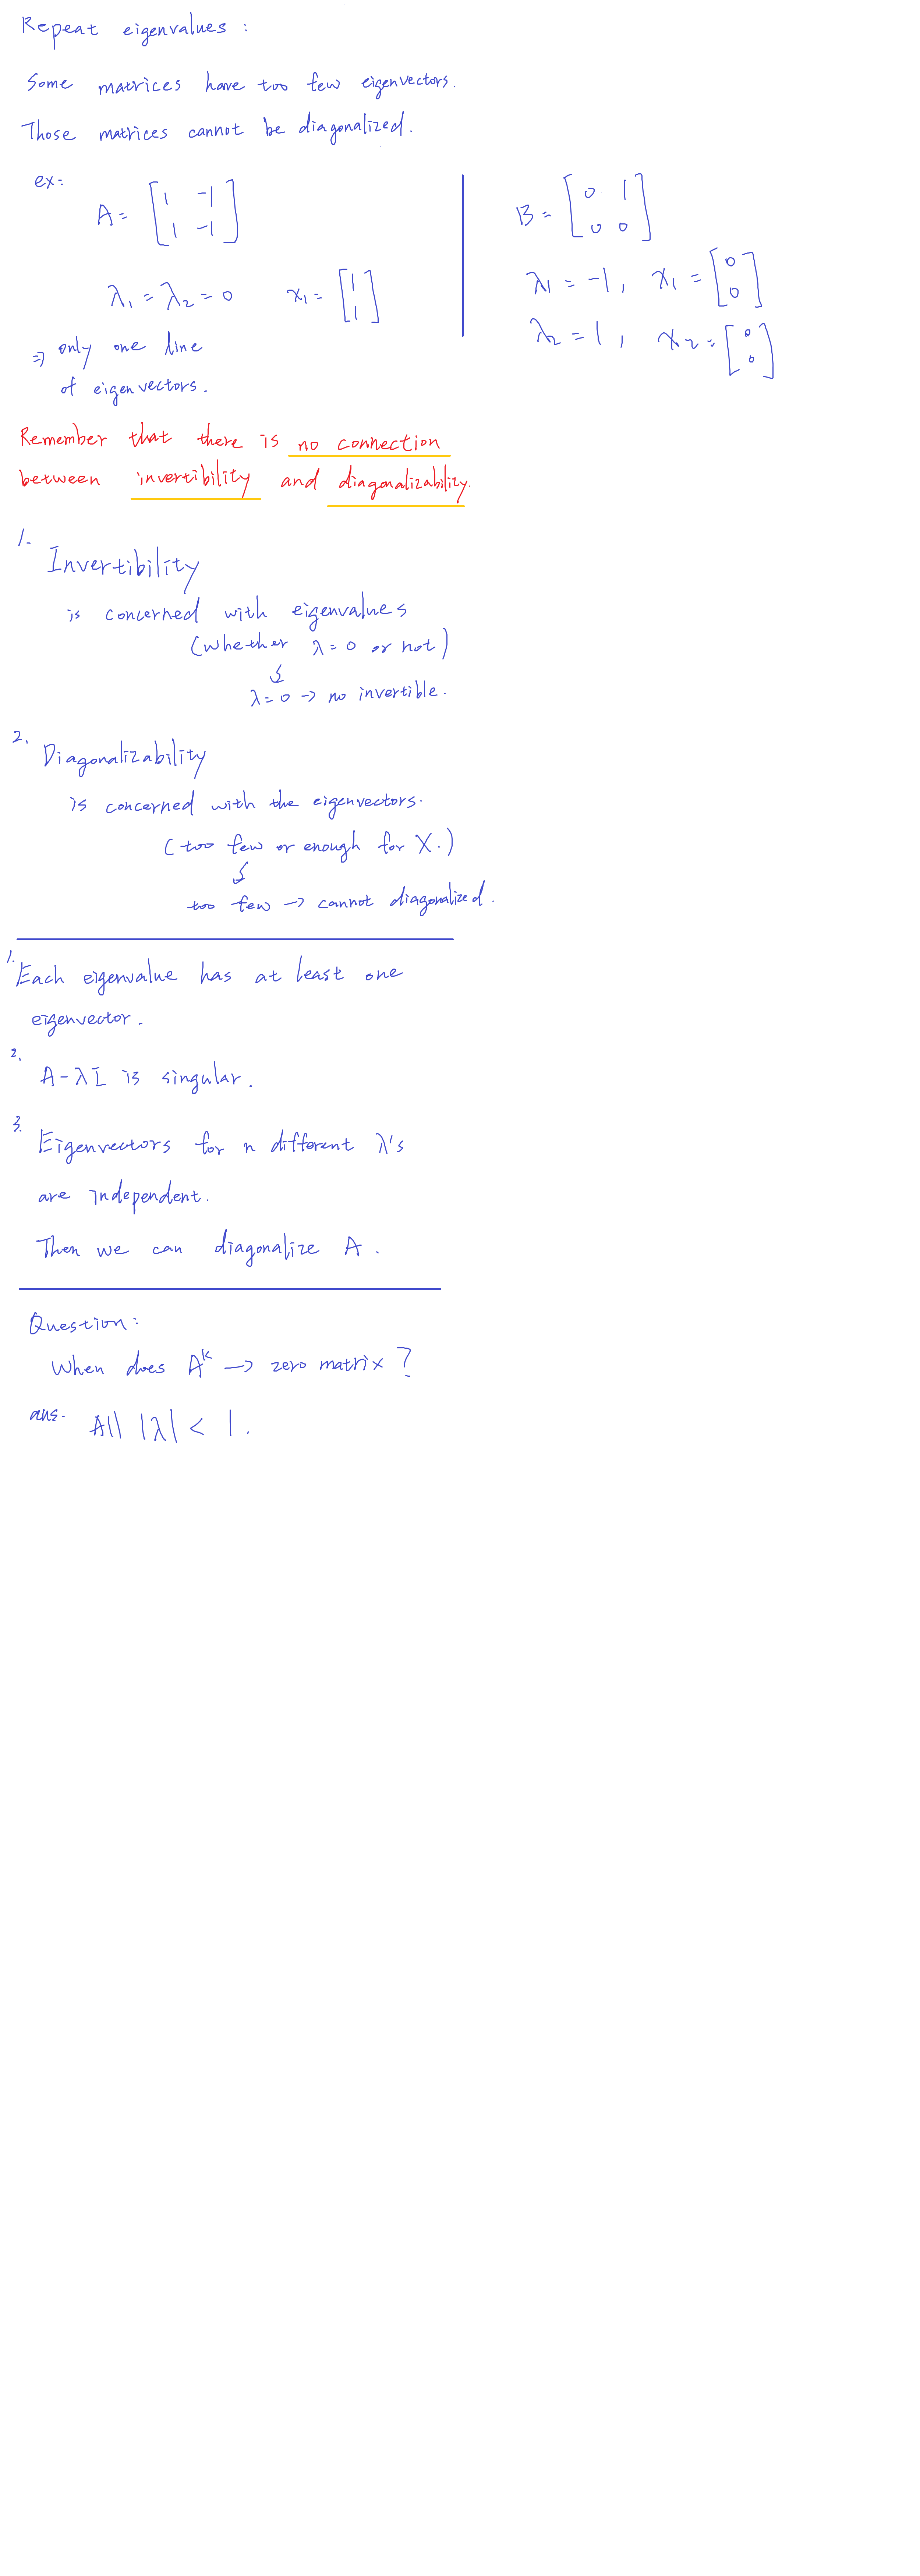 Repeat eigenvalues :
Some matrices have too few eigenvectors.
Those matrices cannot be diagonalized.
ex:
A = [ 1 -1
1 -1 ]
λ₁ = λ₂ = 0 x₁ = [ 1
1 ]
⇒ only one line
of eigenvectors.
B = [ 0 1
0 0 ]
λ₁ = -1, x₁ = [ 0
0 ]
λ₂ = 1, x₂ = [ 0
0 ]
Remember that there is no connection
between invertibility and diagonalizability.
1. Invertibility
is concerned with eigenvalues
(whether λ = 0 or not)
λ = 0 → no invertible.
2. Diagonalizability
is concerned with the eigenvectors.
(too few or enough for X.)
too few → cannot diagonalized.
1. Each eigenvalue has at least one
eigenvector.
2. A - λI is singular.
3. Eigenvectors for n different λ's
are independent.
Then we can diagonalize A.
Question:
When does Aᵏ → zero matrix ?
ans. All |λ| < 1.